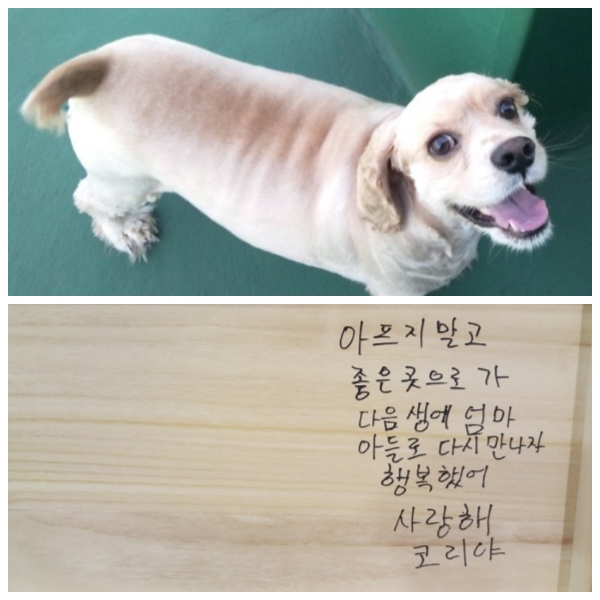 아프지말고
좋은 곳으로 가
다음 생에 엄마
아들로 다시 만나자
행복했어
사랑해
코리야